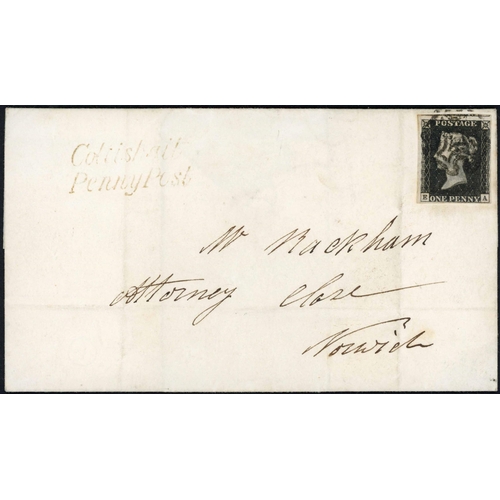 Coltishall
Penny Post
POSTAGE
ONE PENNY A
Mr Rackham
Attorney Close
Norwich